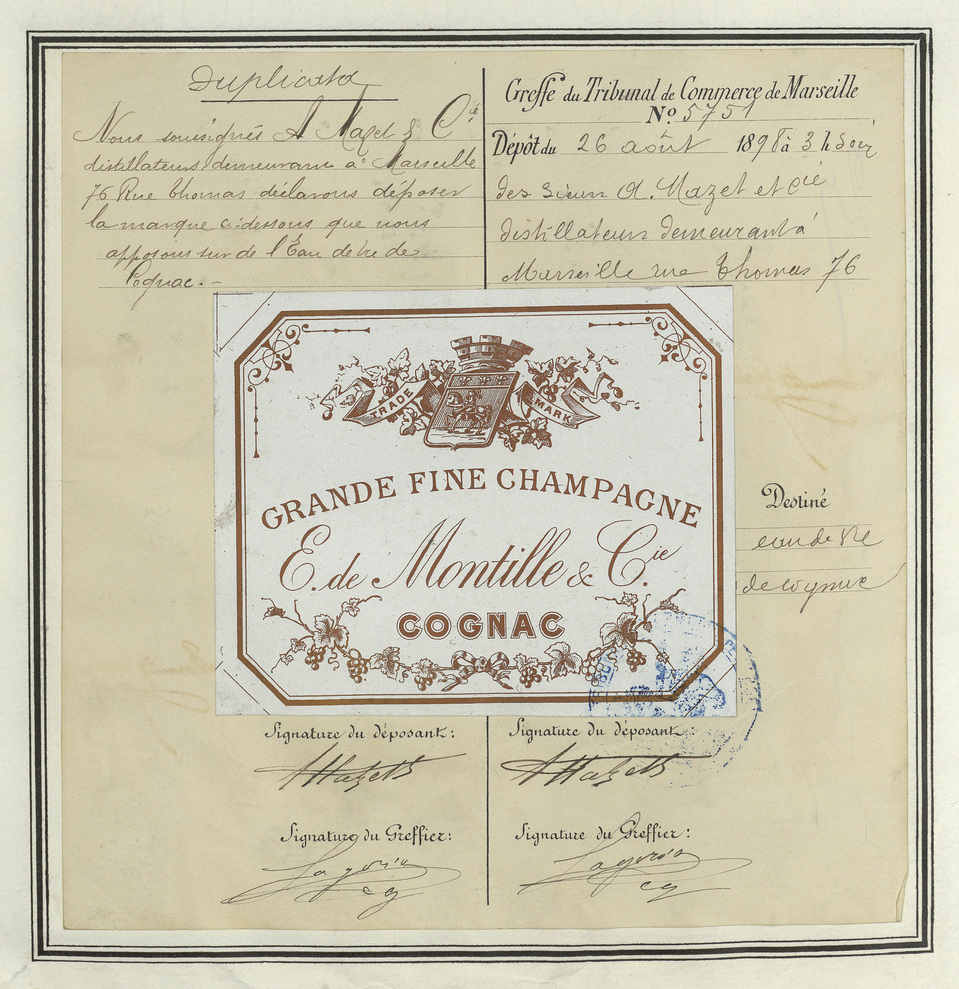 Duplicata
Nous soussignés A Mazet & Cie
distillateurs demeurant à Marseille
76 Rue Thomas déclarons déposer
la marque ci dessous que nous
apposons sur de l'Eau de Vie de
Cognac.-
Greffe du Tribunal de Commerce de Marseille
No. 5751
Dépôt du 26 août 1898 à 3 h Soir
des Sieurs A. Mazet et Cie
distillateurs demeurant à
Marseille rue Thomas 76
TRADE MARK
GRANDE FINE CHAMPAGNE
E. de Montille & Cie
COGNAC
Destiné
eau de vie
de cognac
Signature du déposant:
AMazet
Signature du déposant:
AMazet
Signature du Greffier:
Signature du Greffier: